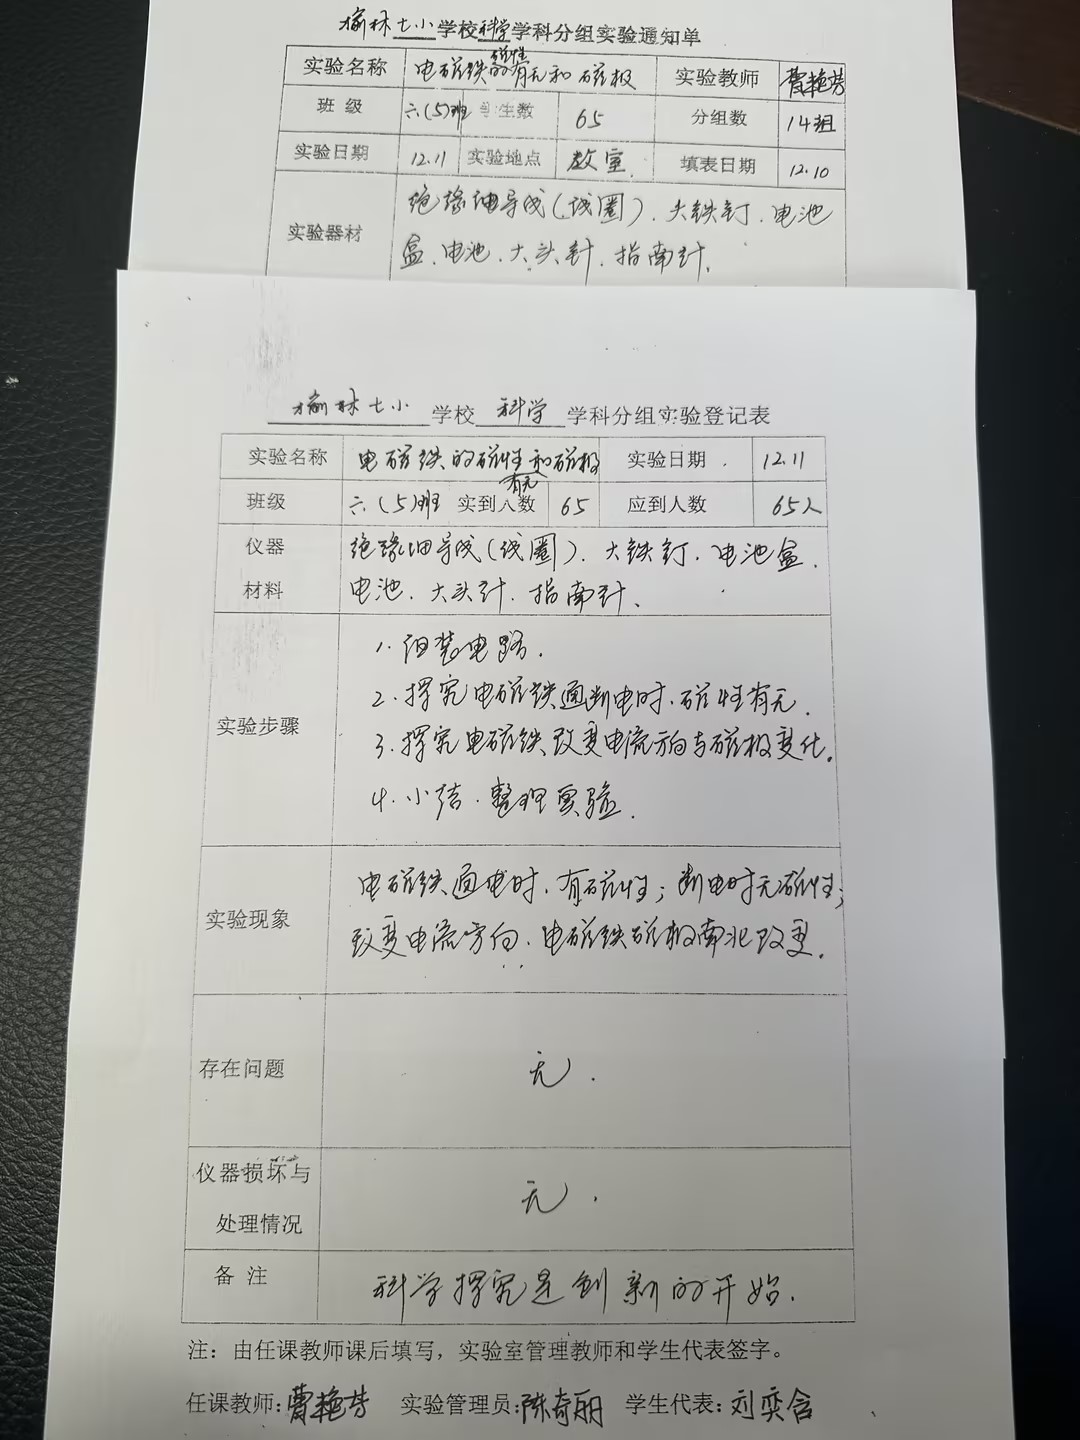 榆林七小学校科学学科分组实验通知单
实验名称 电磁铁的磁性有无和磁极 实验教师 曹艳芳
班 级 六(5)班 学生数 65 分组数 14组
实验日期 12.11 实验地点 教室. 填表日期 12.10
实验器材 绝缘细导线(线圈)、大铁钉、电池
盒、电池、大头针、指南针.
榆林七小 学校 科学 学科分组实验登记表
实验名称 电磁铁的磁性有无和磁极 实验日期 12.11
班级 六(5)班 实到人数 65 应到人数 65人
仪器 绝缘细导线(线圈)、大铁钉、电池盒、
材料 电池、大头针、指南针、
1.组装电路.
2.探究电磁铁通断电时,磁性有无.
实验步骤 3.探究电磁铁改变电流方向与磁极变化.
4.小结.整理实验.
电磁铁通电时,有磁性;断电时无磁性;
实验现象 改变电流方向,电磁铁磁极南北改变.
存在问题 无.
仪器损坏与 无.
处理情况
备 注 科学探究是创新的开始.
注:由任课教师课后填写,实验室管理教师和学生代表签字。
任课教师:曹艳芳 实验管理员:陈奇丽 学生代表:刘奕含